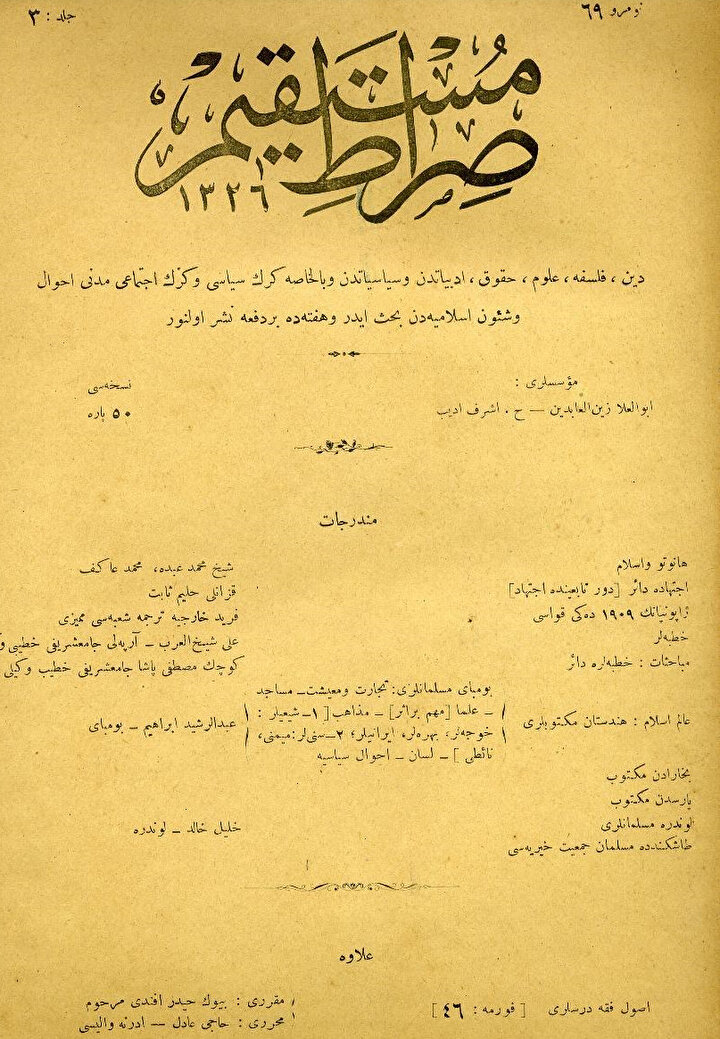 نومرو ٦٩
جلد : ٣
صراط مستقيم
١٣٢٦
دين ، فلسفه ، علوم ، حقوق ، ادبياتدن وسياسياتدن وبالخاصه كرك سياسى وكرك اجتماعى مدنى احوال
وشئون اسلاميه‌دن بحث ايدر وهفته‌ده بردفعه نشر اولنور
مؤسسلرى :
نسخه‌سى
ابوالعلا زين‌العابدين — ح . اشرف اديب
٥٠ پاره
مندرجات
هانوتو واسلام شيخ محمد عبده، محمد عاكف
اجتهاده دائر [دور تابعينده اجتهاد] قزانلى حليم ثابت
ژاپونيانك ١٩٠٩ ده‌كى قواسى فريد خارجيه ترجمه شعبه‌سى مميزى
خطبه‌لر على شيخ‌العرب ـ آريه‌لى جامعشريفى خطيبى و
مباحثات : خطبه‌لره دائر كوچك مصطفى پاشا جامعشريفى خطيب وكيلى
بومباى مسلمانلرى: تجارت ومعيشت ـ مساجد
ـ علما [مهم براثر] ـ مذاهب [١ـ شيعيلر :
عالم اسلام : هندستان مكتوبلرى عبدالرشيد ابراهيم ـ بومباى
خوجه‌لر، بهره‌لر، ايرانيلر؛ ٢ـ سنى‌لر: ميمنى،
نائطى ] ـ لسان ـ احوال سياسيه
بخارادن مكتوب
پارسدن مكتوب
لوندره مسلمانلرى خليل خالد ـ لوندره
طاشكندده مسلمان جمعيت خيريه‌سى
علاوه
اصول فقه درسلرى [ فورمه : ٤٦ ]
مقررى : بيوك حيدر افندى مرحوم
محررى : حاجى عادل — ادرنه واليسى